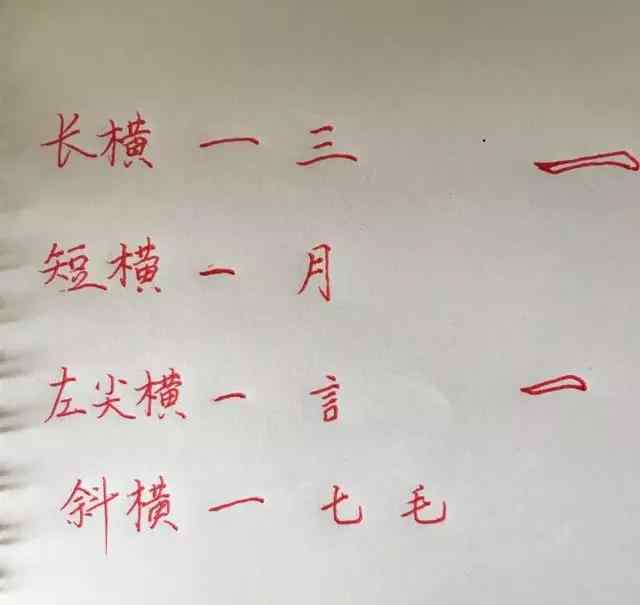 长横 一 三 一
短横 一 月
左尖横 一 言 一
斜横 一 七 毛